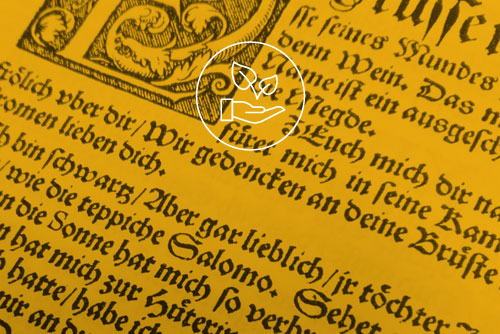 ſſe ſeines Mundes
denn Wein. Das
Name iſt ein ausgeſch
Megde.
ZEuch mich dir
füret mich in ſeine Kam
frölich vber dir / Wir gedencken an deine Brüſte
komen lieben dich.
bin ſchwartz / Aber gar lieblich / jr töchter
/ wie die teppiche Salomo. Sehe
die Sonne hat mich ſo verbr
hat mich zur Hüterin
hatte / habe ich